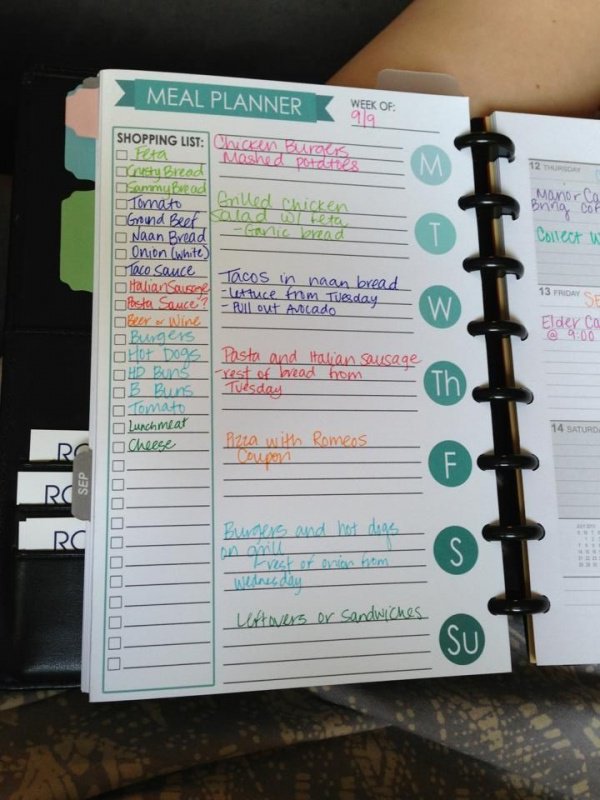 MEAL PLANNER
WEEK OF:
9/9
SHOPPING LIST:
Feta
Crusty Bread
Sammy Bread
Tomato
Ground Beef
Naan Bread
Onion (white)
Taco Sauce
Italian Sausage
Pasta Sauce?
Beer or Wine
Burgers
Hot Dogs
HD Buns
B Buns
Tomato
Lunchmeat
Cheese
Chicken Burgers
Mashed potatoes
M
Grilled chicken
salad w/ feta
- Garlic bread
T
Tacos in naan bread
- Lettuce from Tuesday
- Pull out Avocado
W
Pasta and Italian sausage
- rest of bread from
Tuesday
Th
Pizza with Romeos
Coupon
F
Burgers and hot dogs
on grill
- rest of onion from
Wednesday
S
Leftovers or sandwiches
Su
SEP
RO
RO
RC
12 THURSDAY
Manor Ca
Bring Co
Collect W
13 FRIDAY
SE
Elder Ca
@ 9:00
14 SATURD